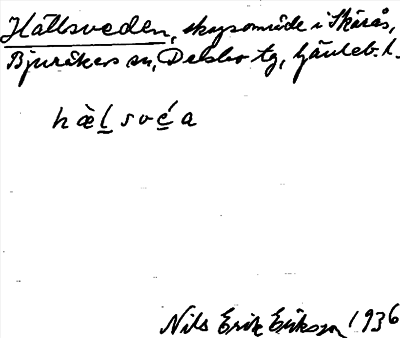 Hällsveden, skogsområde i Skärås,
Bjuråkers sn, Delsbo tg, Gävleb. l.
hæ̀l̲své̲a
Nils Erik Eriksson 1936